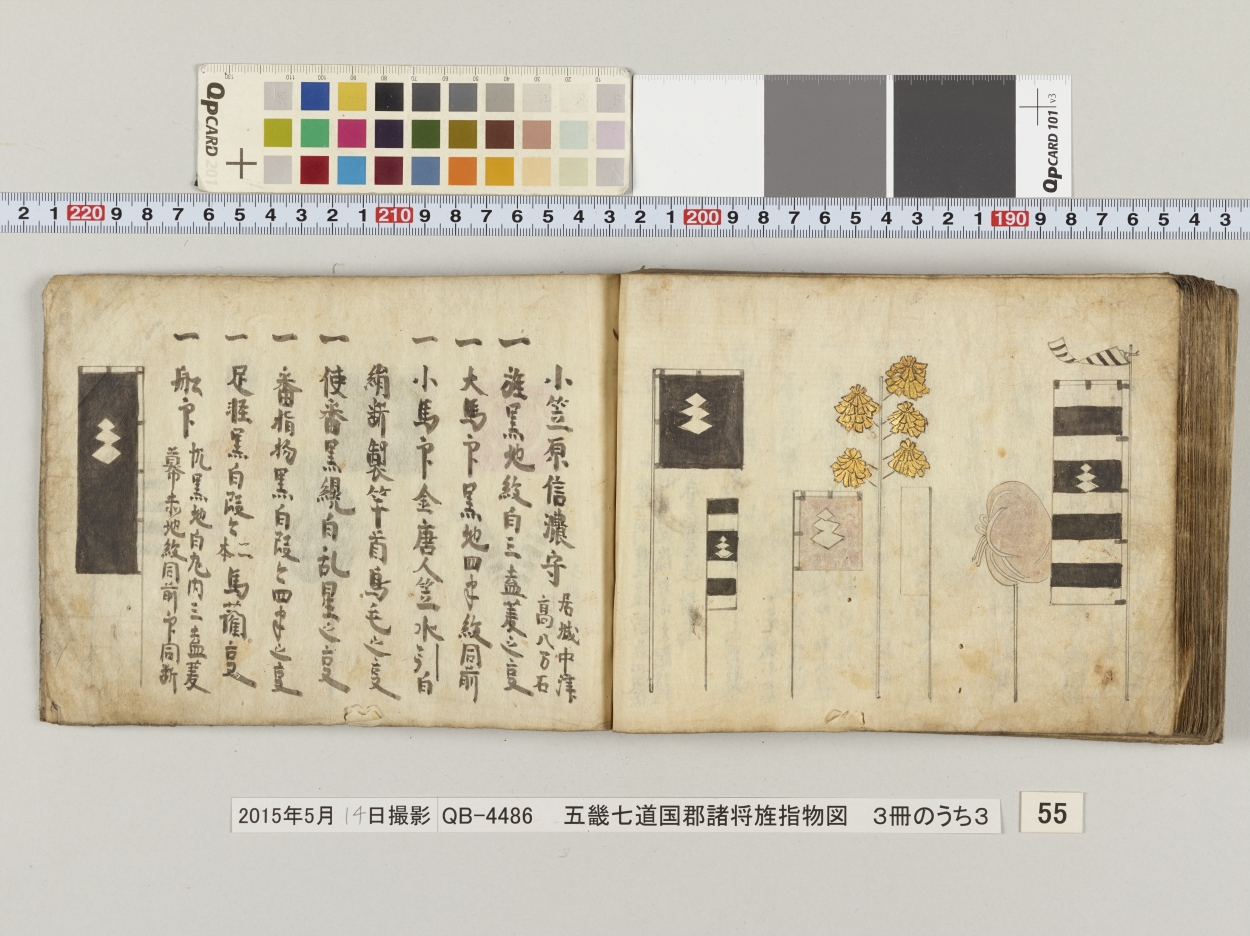 QPCARD 201
QPCARD 101 v3
2 1 220 9 8 7 6 5 4 3 2 1 210 9 8 7 6 5 4 3 2 1 200 9 8 7 6 5 4 3 2 1 190 9 8 7 6 5 4 3
小笠原信濃守 居城中津 高八万石
一 旌黒地紋白三盍菱之㕝
一 大馬印黒地四半紋同前
一 小馬印金唐人笠水引白
絹断製竿首鳥毛之㕝
一 使番黒纔白乱星之㕝
一 番指物黒白段々四半之㕝
一 足軽黒白段々二本馬藺㕝
一 船印 帆黒地白丸内三盍菱
幕赤地紋同前印同断
2015年5月14日撮影
QB-4486 五畿七道国郡諸将旌指物図 3冊のうち3
55